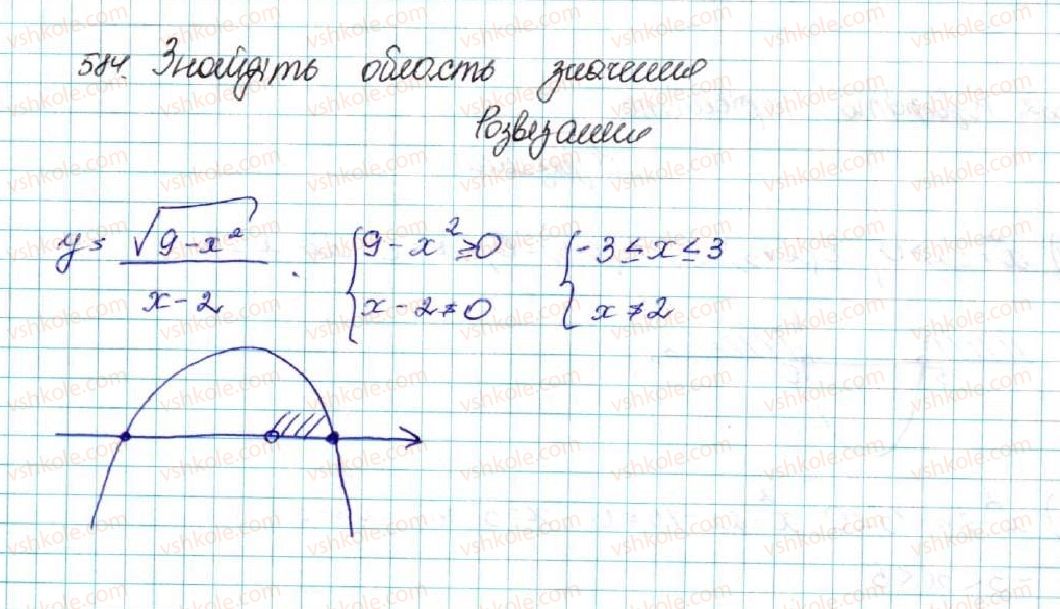 584. Знайдіть область значення
Розвезание
y = √(9-x²) / (x-2) . { 9-x² ≥ 0 { -3 ≤ x ≤ 3
{ x-2 ≠ 0 { x ≠ 2
vshkole.com